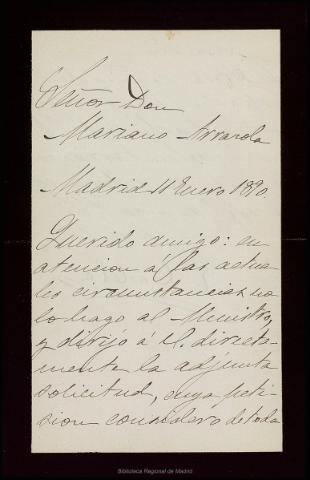 Señor Don
Mariano Arrazola
Madrid 11 Enero 1890
Querido amigo: en
atencion á las actua-
les circunstancias no
lo hago al Ministro,
y dirijo á V. directa-
mente la adjunta
solicitud, cuya peti-
cion considero de toda
Biblioteca Regional de Madrid